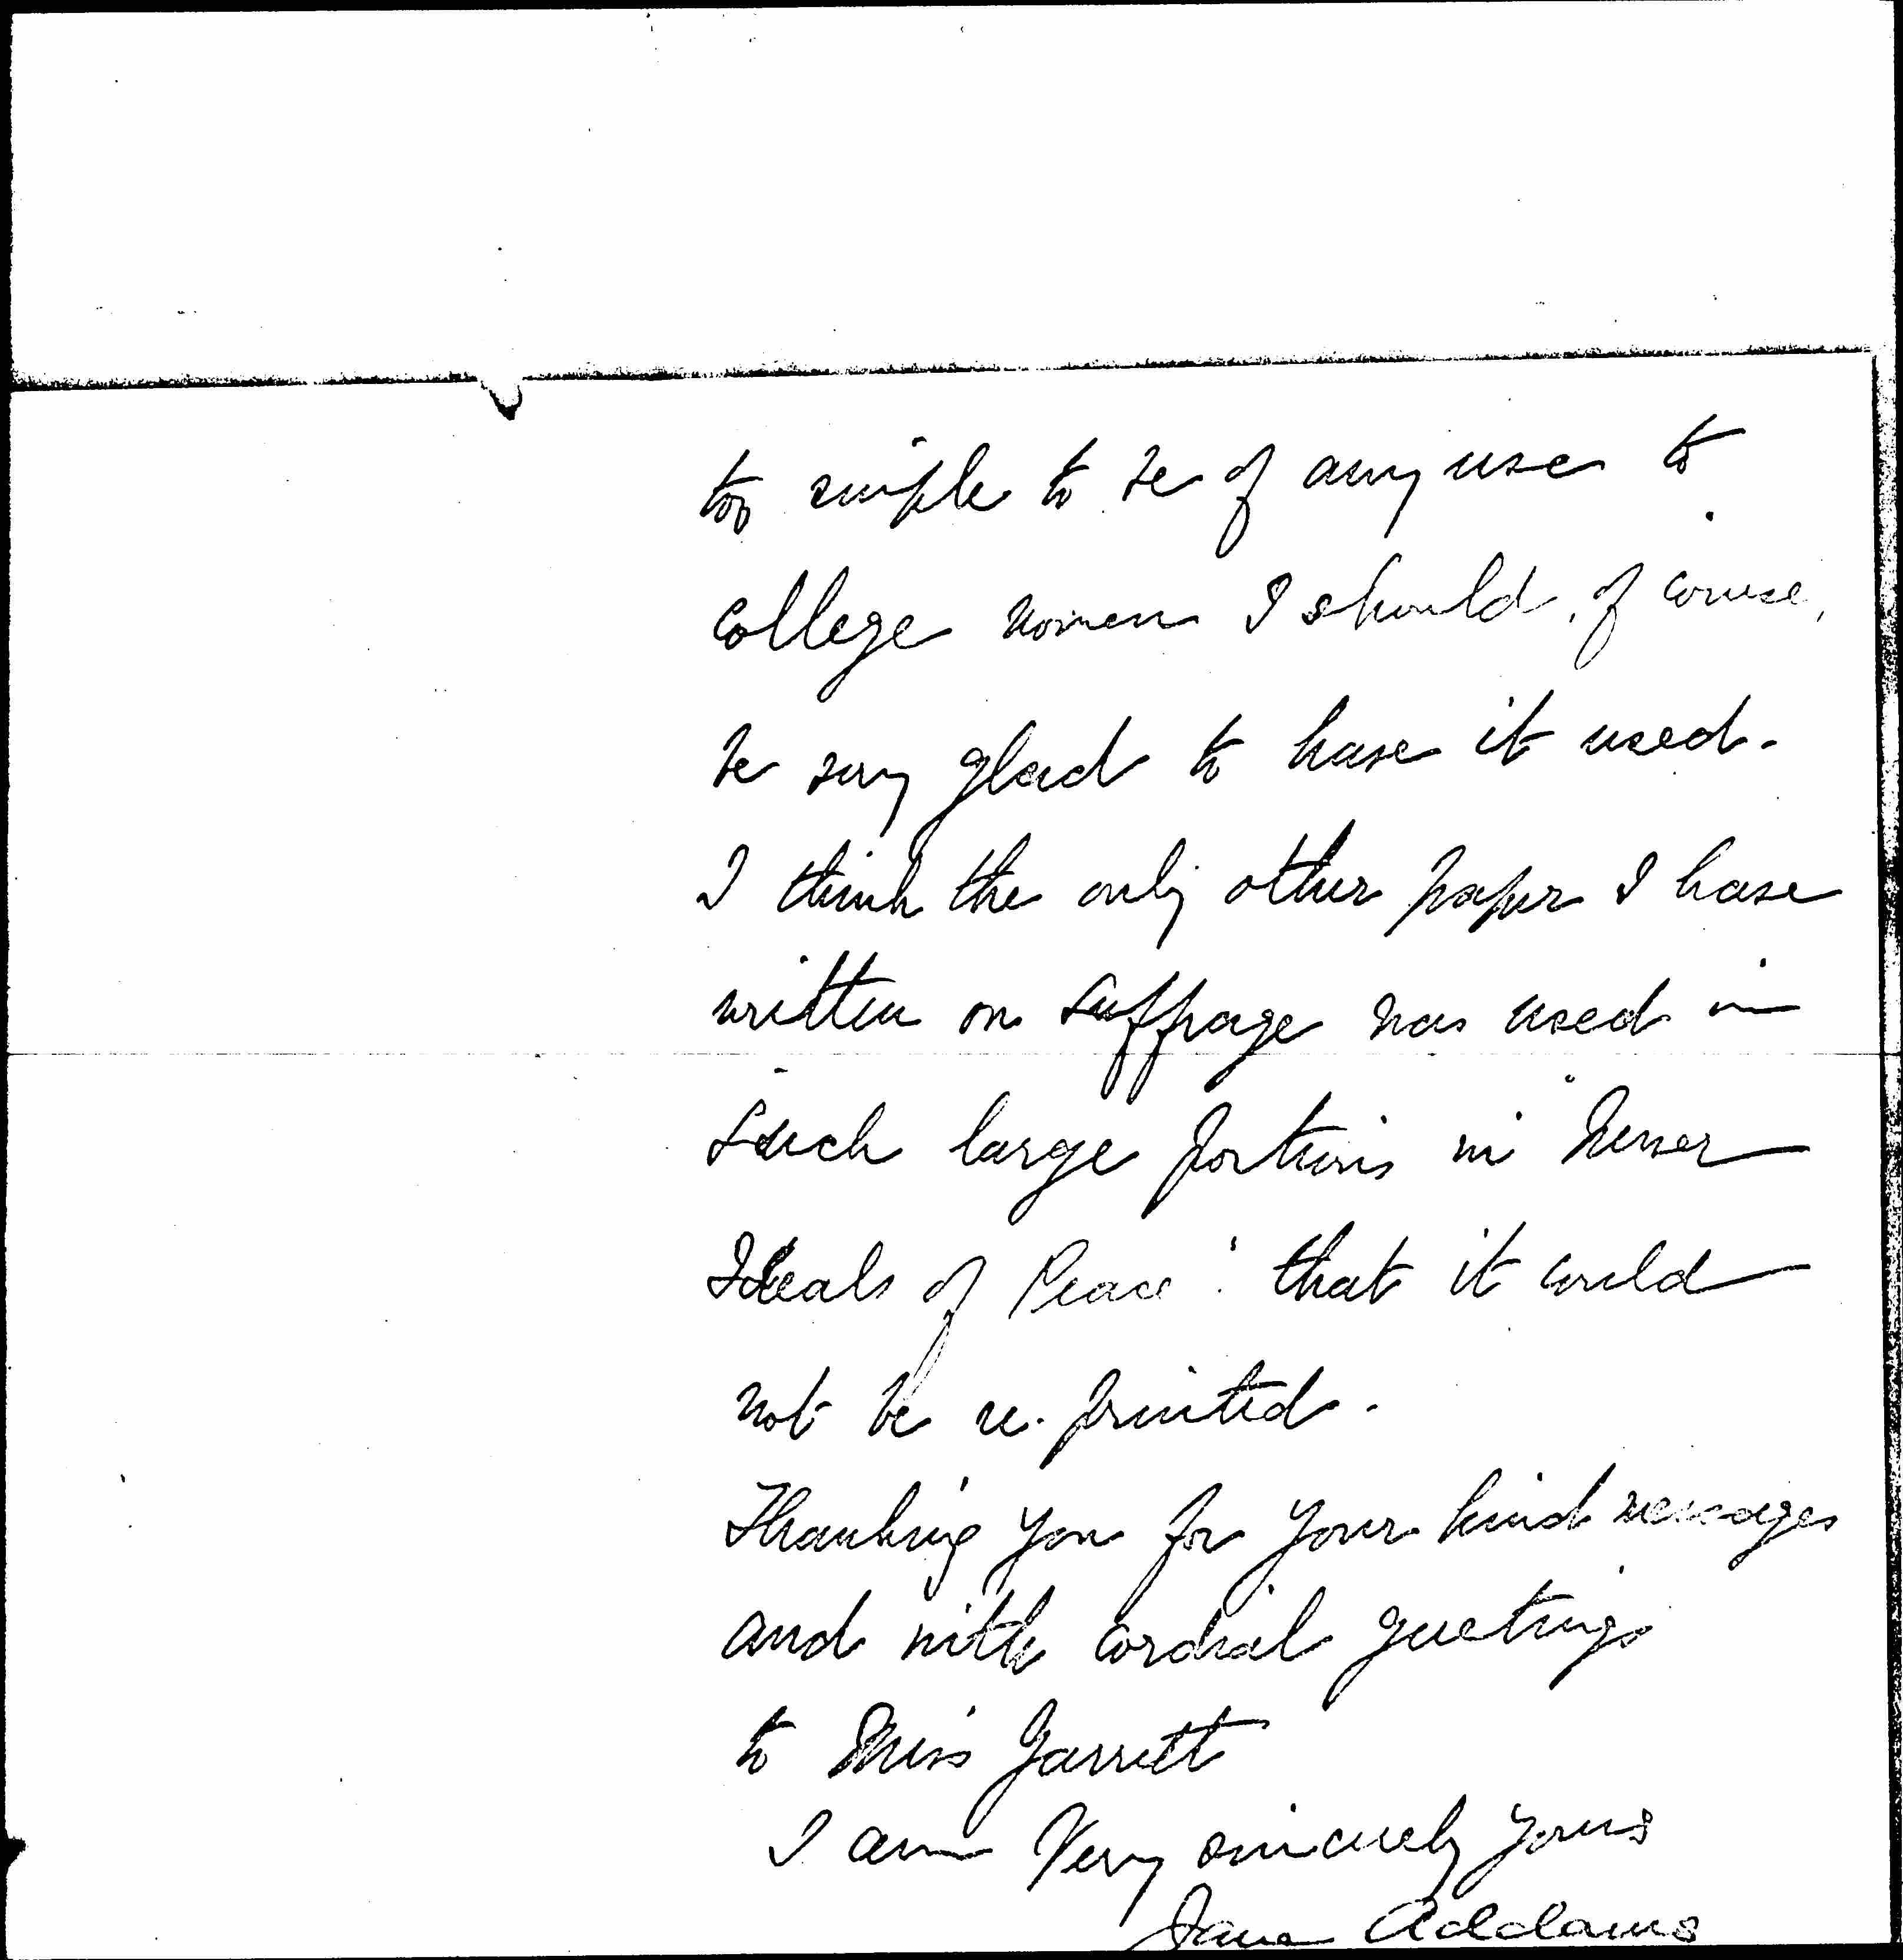 too simple to be of any use to
college women I should, of course,
be very glad to have it used.
I think the only other paper I have
written on suffrage was used in
such large portions in "Newer
Ideals of Peace" that it could
not be re-printed.
Thanking you for your kind messages
and with cordial greetings
to Miss Garrett
I am Very sincerely yours
Jane Addams